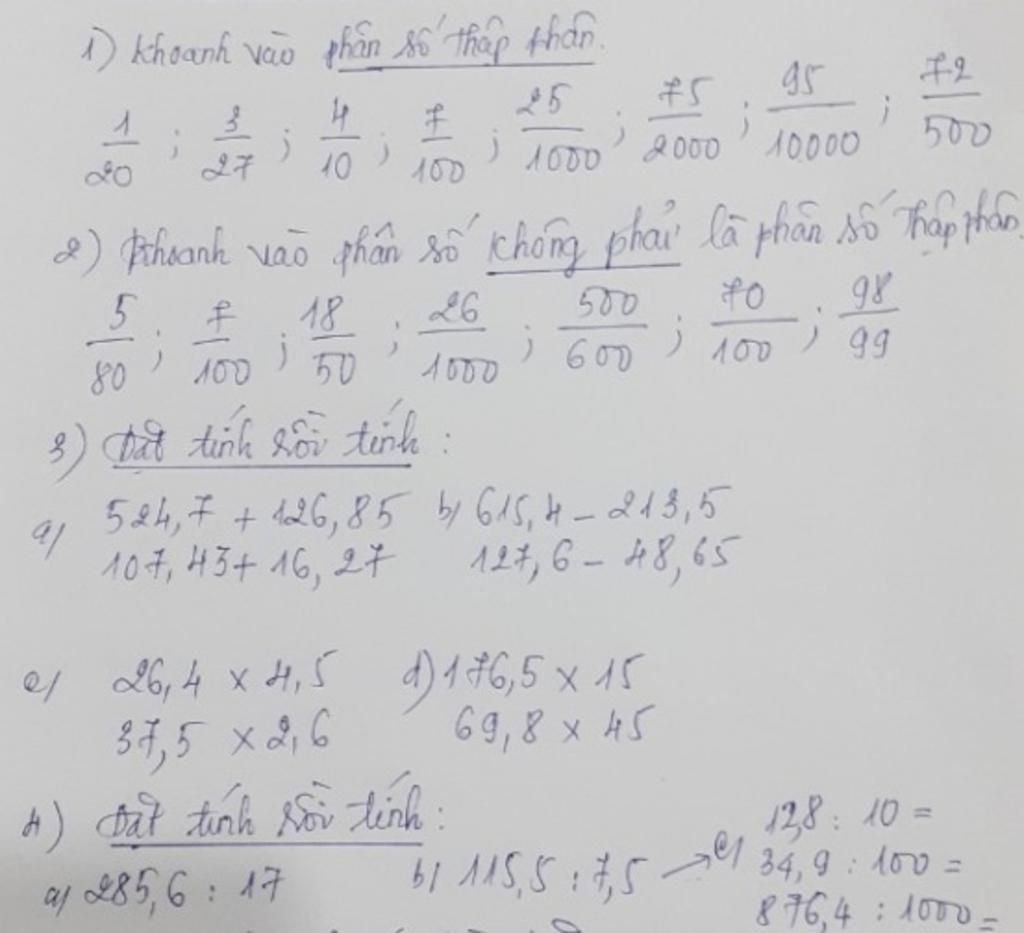 1) Khoanh vào phân số thập phân.
1/20 ; 3/27 ; 4/10 ; 7/100 ; 25/1000 ; 75/2000 ; 95/10000 ; 72/500
2) Khoanh vào phân số không phải là phân số thập phân.
5/80 ; 7/100 ; 18/50 ; 26/1000 ; 500/600 ; 70/100 ; 98/99
3) Đặt tính rồi tính :
a) 524,7 + 126,85 b) 615,4 - 213,5
107,43 + 16,27 127,6 - 48,65
c) 26,4 x 4,5 d) 176,5 x 15
37,5 x 2,6 69,8 x 45
4) Đặt tính rồi tính :
a) 285,6 : 17 b) 115,5 : 7,5 → c) 12,8 : 10 =
34,9 : 100 =
876,4 : 1000 =